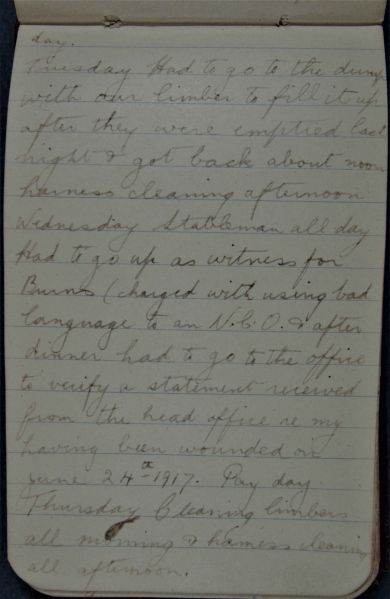 day.
Tuesday Had to go to the dump
with our limber to fill it up
after they were emptied last
night & got back about noon
harness cleaning afternoon
Wednesday Stableman all day
Had to go up as witness for
Burns (charged with using bad
language to an N.C.O. & after
dinner had to go to the office
to verify a statement received
from the head office re my
having been wounded on
June 24th 1917. Pay day.
Thursday Cleaning limbers
all morning & harness cleaning
all afternoon.